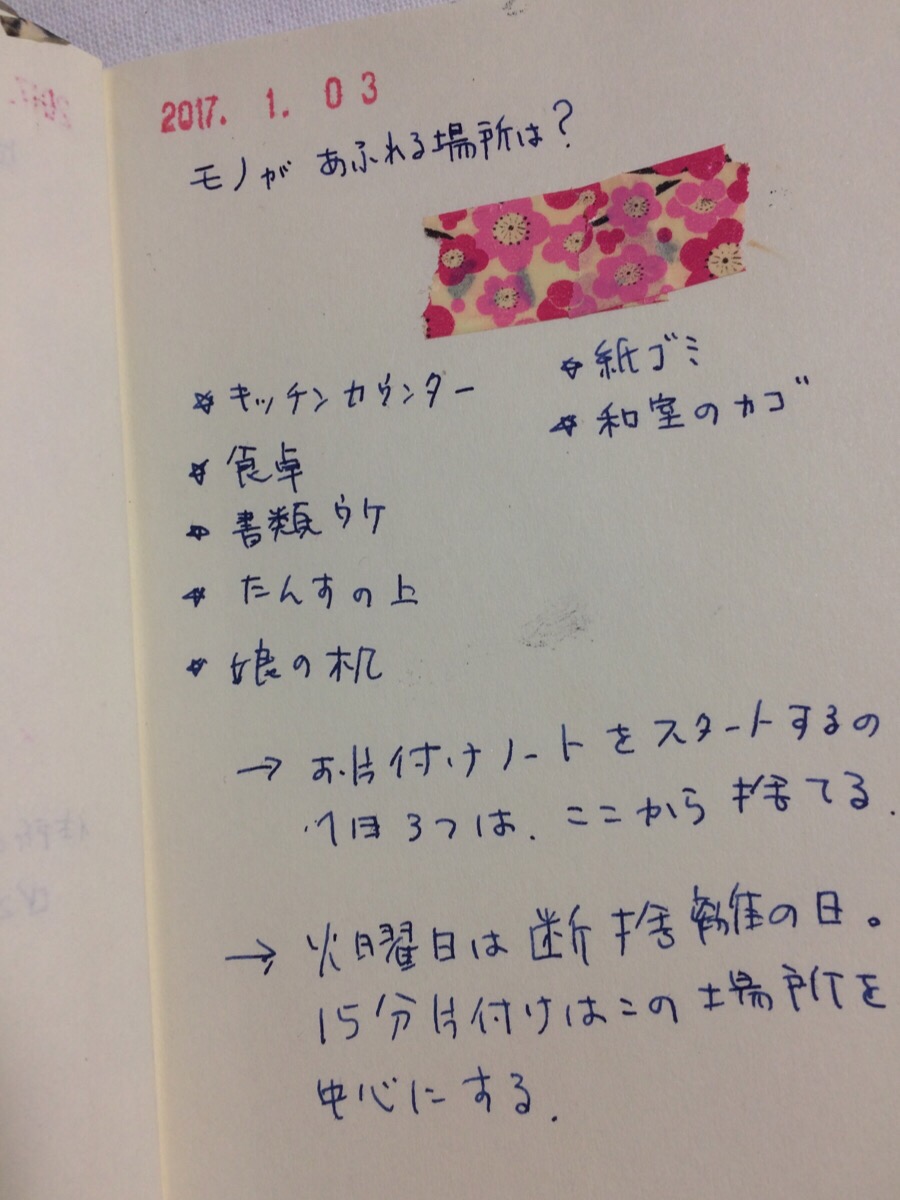 2017. 1. 03
モノが あふれる場所は?
☆ キッチンカウンター
☆ 食卓
☆ 書類ウケ
☆ たんすの上
☆ 娘の机
☆ 紙ゴミ
☆ 和室のカゴ
→ お片付けノートをスタートするの
1日3つは、ここから捨てる.
→ 火曜日は断捨離の日。
15分片付けはこの場所を
中心にする.